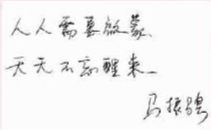 人人需要启蒙、
天天不忘醒来。
马振骋